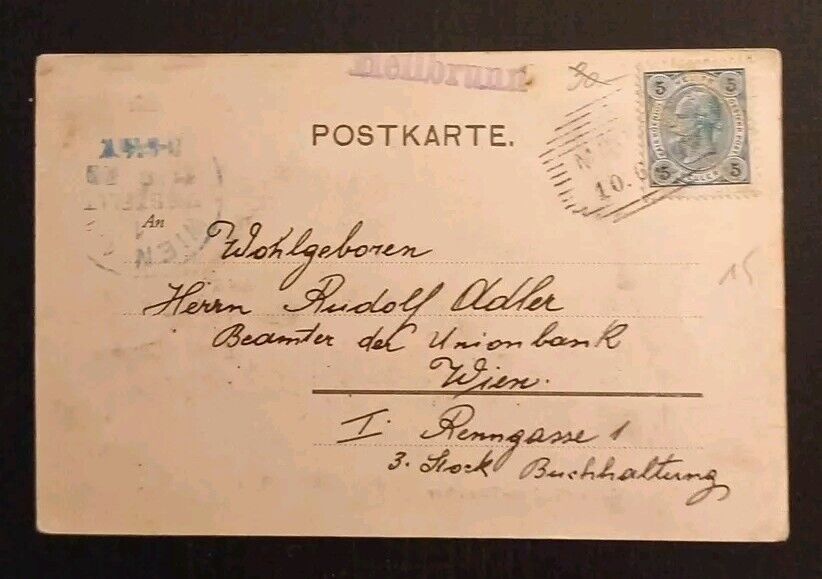 Hellbrunn
POSTKARTE.
5 5
5 5
10.6
WIEN
An
Wohlgeboren
Herrn Rudolf Adler
Beamter der Unionbank
Wien.
I. Renngasse 1
3. Stock Buchhaltung
15